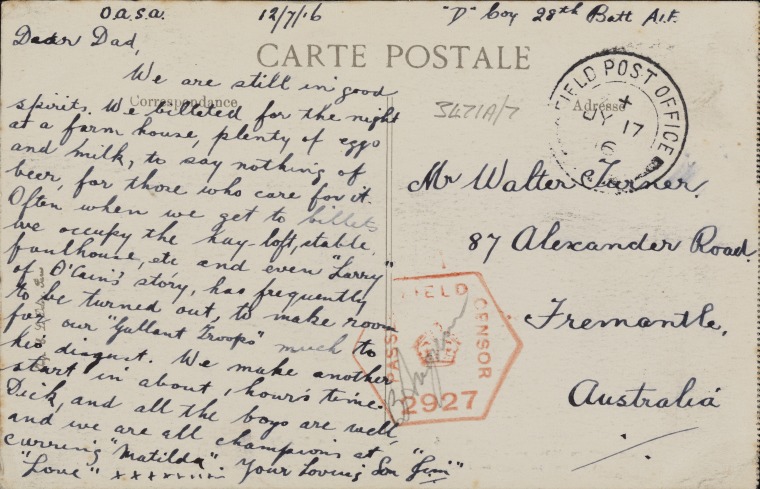 O.A.S.A. 12/7/16 "D" Coy 28th Batt A.I.F.
CARTE POSTALE
Correspondance
Adresse
3471A/7
Dear Dad,
We are still in good
spirits. We billeted for the night
at a farm house, plenty of eggs
and milk, to say nothing of
beer, for those who care for it.
Often when we get to billets
we occupy the hay loft, stable,
fowlhouse, etc and even "Larry"
of O'Cain's story, has frequently
to be turned out, to make room
for our "Gallant Troops" much to
his disgust. We make another
start in about 1 hour's time.
Dick, and all the boys are well,
and we are all champions at
currying "Matilda". Your Loving Son "Jim"
"Love" xxxxxxxx
FIELD POST OFFICE
JY 17
Mr Walter Turner.
87 Alexander Road.
Fremantle,
Australia
PASSED FIELD CENSOR
2927